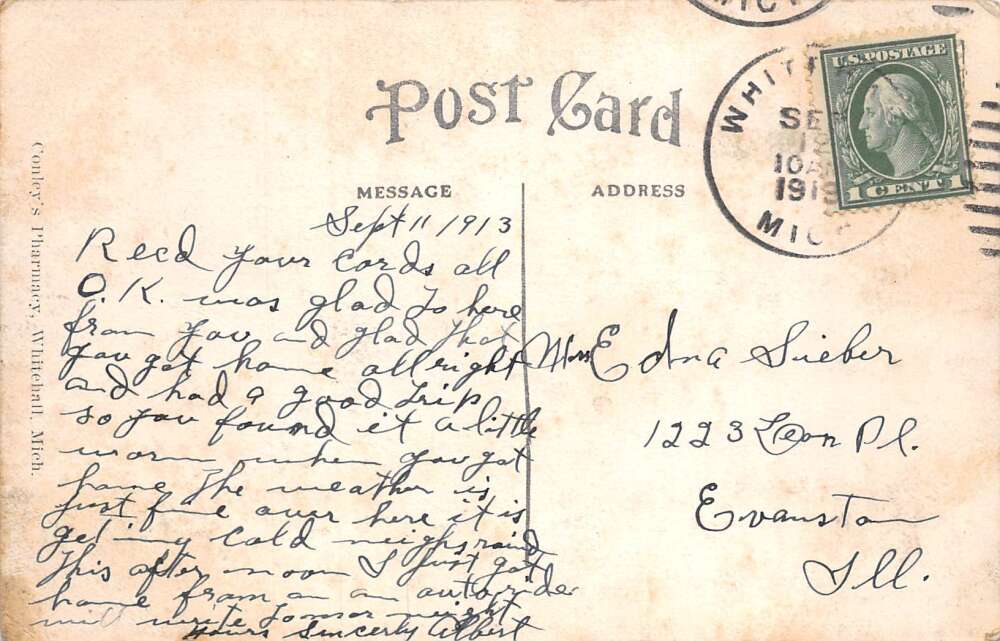 MICH
WHITEHALL
SEP
10A
1913
MICH
U.S.POSTAGE
1 CENT 1
Post Card
MESSAGE
ADDRESS
Conley's Pharmacy, Whitehall, Mich.
Sept 11 1913
Recd your cards all
O.K. was glad to here
from you and glad that
you got home allright
and had a good trip
so you found it a little
warm when you got
home The weather is
just fine over here it is
get'ing cold nights raind
this after noon I just got
home from an an auto ride
will write tomor night
Yours Sincerly Albert
Edna Sieber
1223 Leon Pl.
Evanston
Ill.